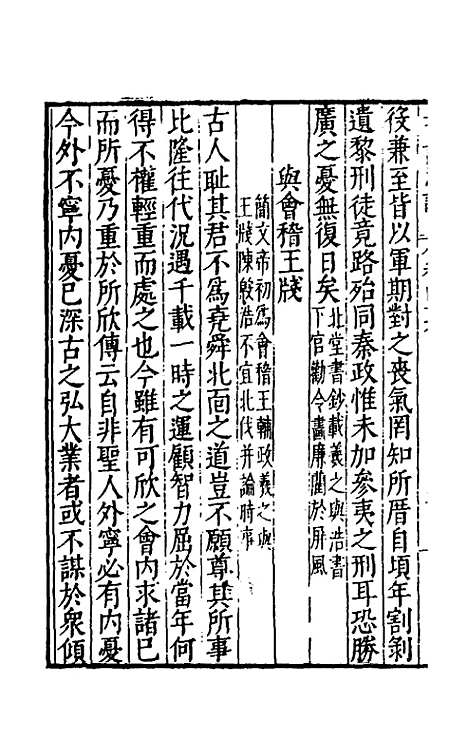 役兼至皆以軍期對之喪氣罔知所厝自頃年割剝
遺黎刑徒竟路殆同秦政惟未加參夷之刑耳恐勝
廣之憂無復日矣
北堂書鈔載羲之與浩書
下官勸令畫廉藺於屏風
與會稽王牋
簡文帝初為會稽王輔政羲之與
王牋陳殷浩不宜北伐并論時事
古人耻其君不為堯舜北面之道豈不願尊其所事
比隆往代況遇千載一時之運顧智力屈於當年何
得不權輕重而處之也今雖有可欣之會內求諸已
而所憂乃重於所欣傳云自非聖人外寧必有內憂
今外不寧內憂已深古之弘大業者或不謀於衆傾